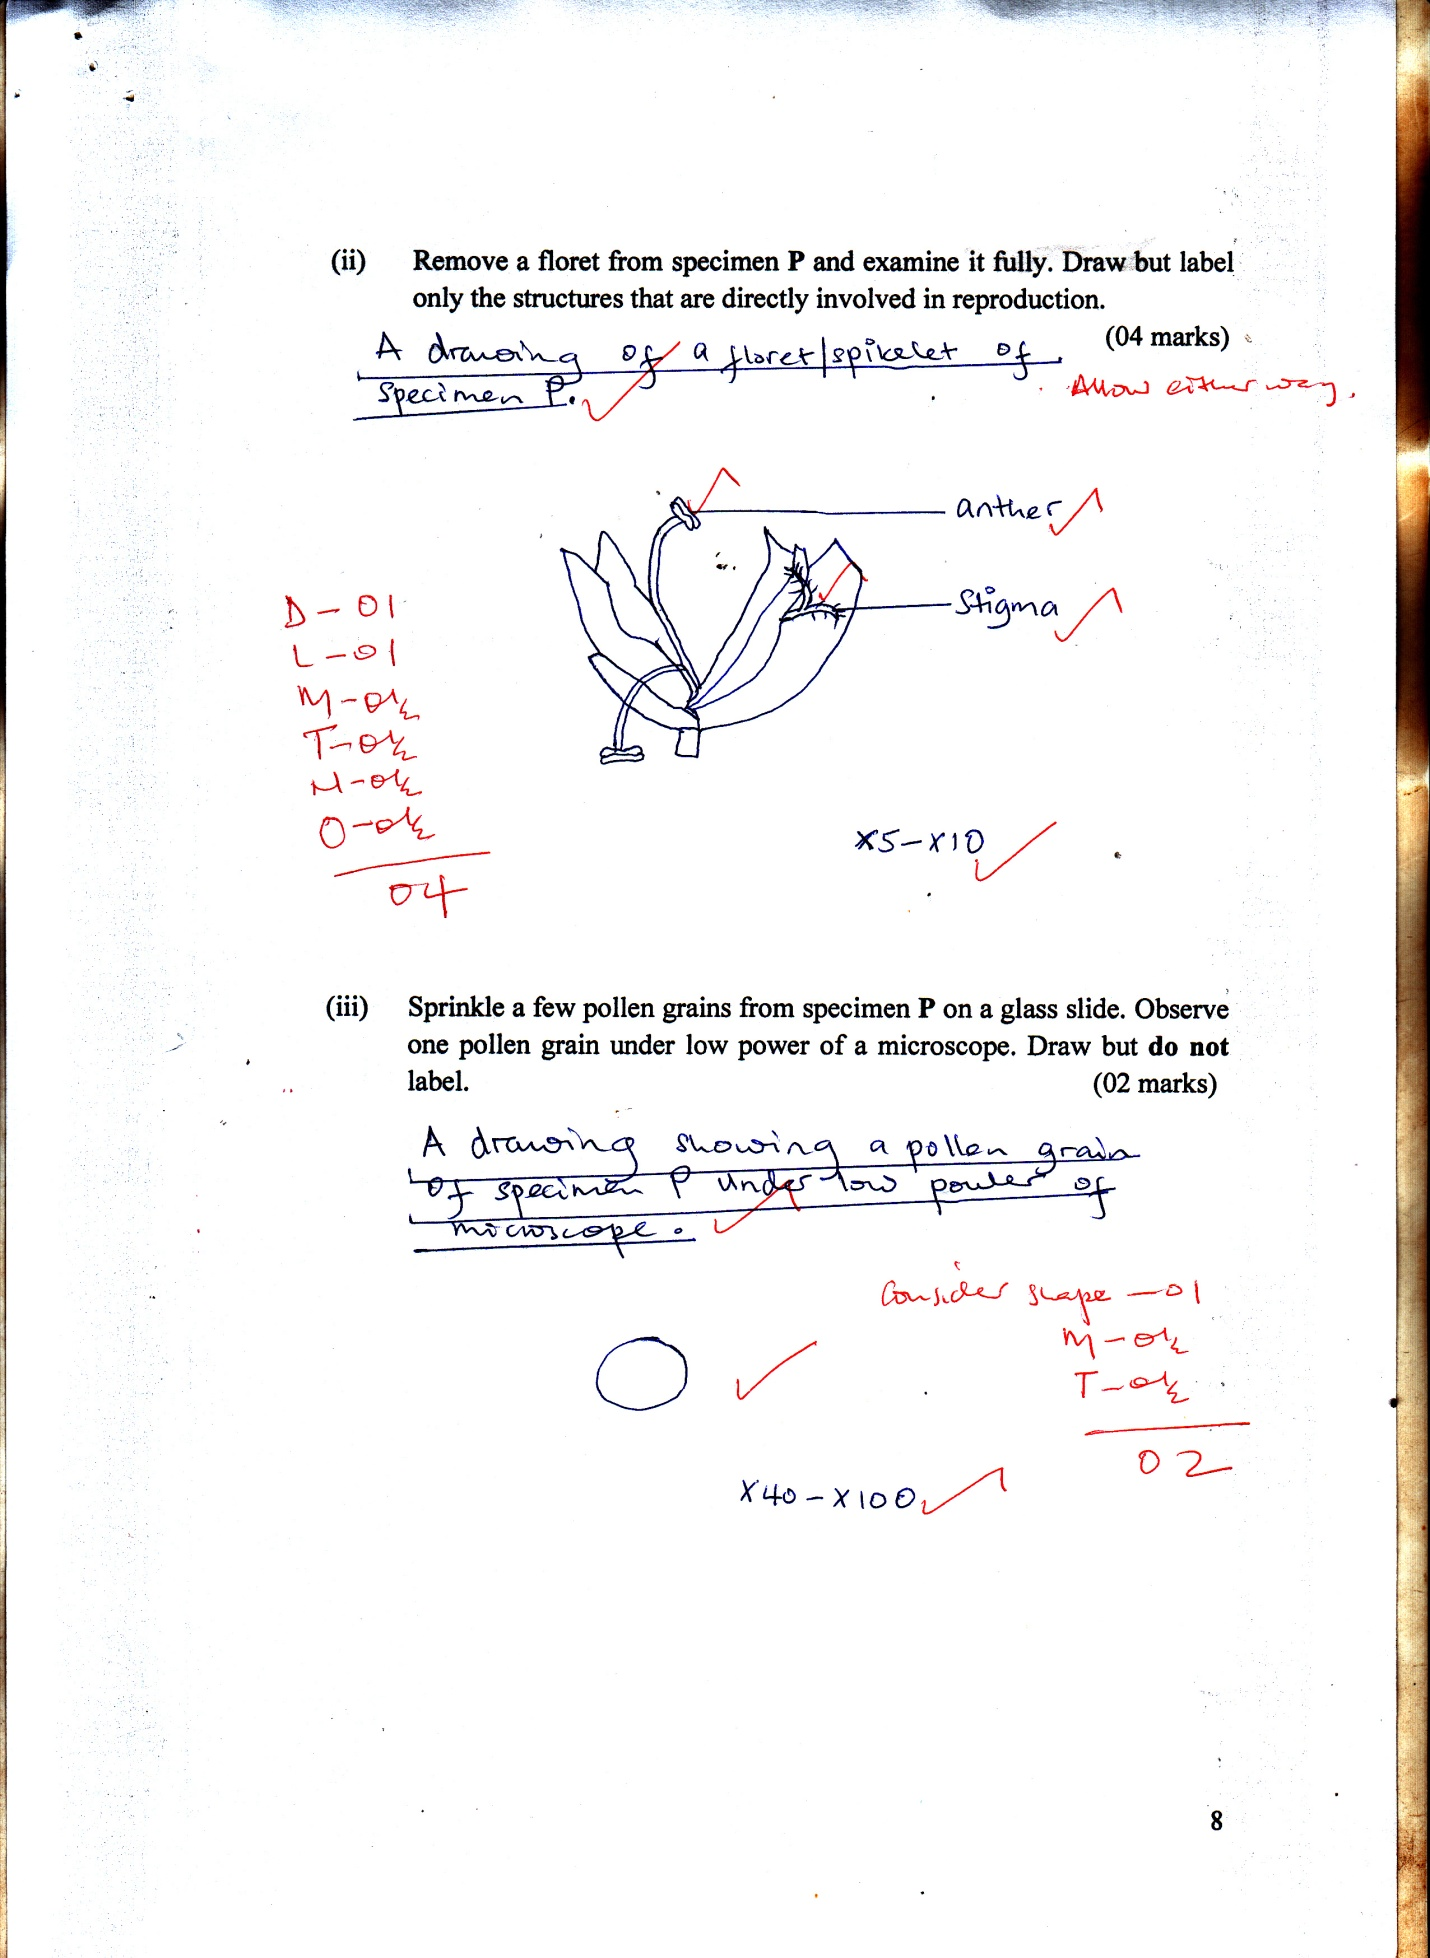 (ii) Remove a floret from specimen P and examine it fully. Draw but label
only the structures that are directly involved in reproduction.
(04 marks)
A drawing of a floret/spikelet of
specimen P.
Allow either way.
anther
stigma
D - 01
L - 01
M - 0½
T - 0½
N - 0½
O - 0½
04
X5 - X10
(iii) Sprinkle a few pollen grains from specimen P on a glass slide. Observe
one pollen grain under low power of a microscope. Draw but do not
label. (02 marks)
A drawing showing a pollen grain
of specimen P under low power of
microscope.
Consider shape - 01
M - 0½
T - 0½
02
X40 - X100
8